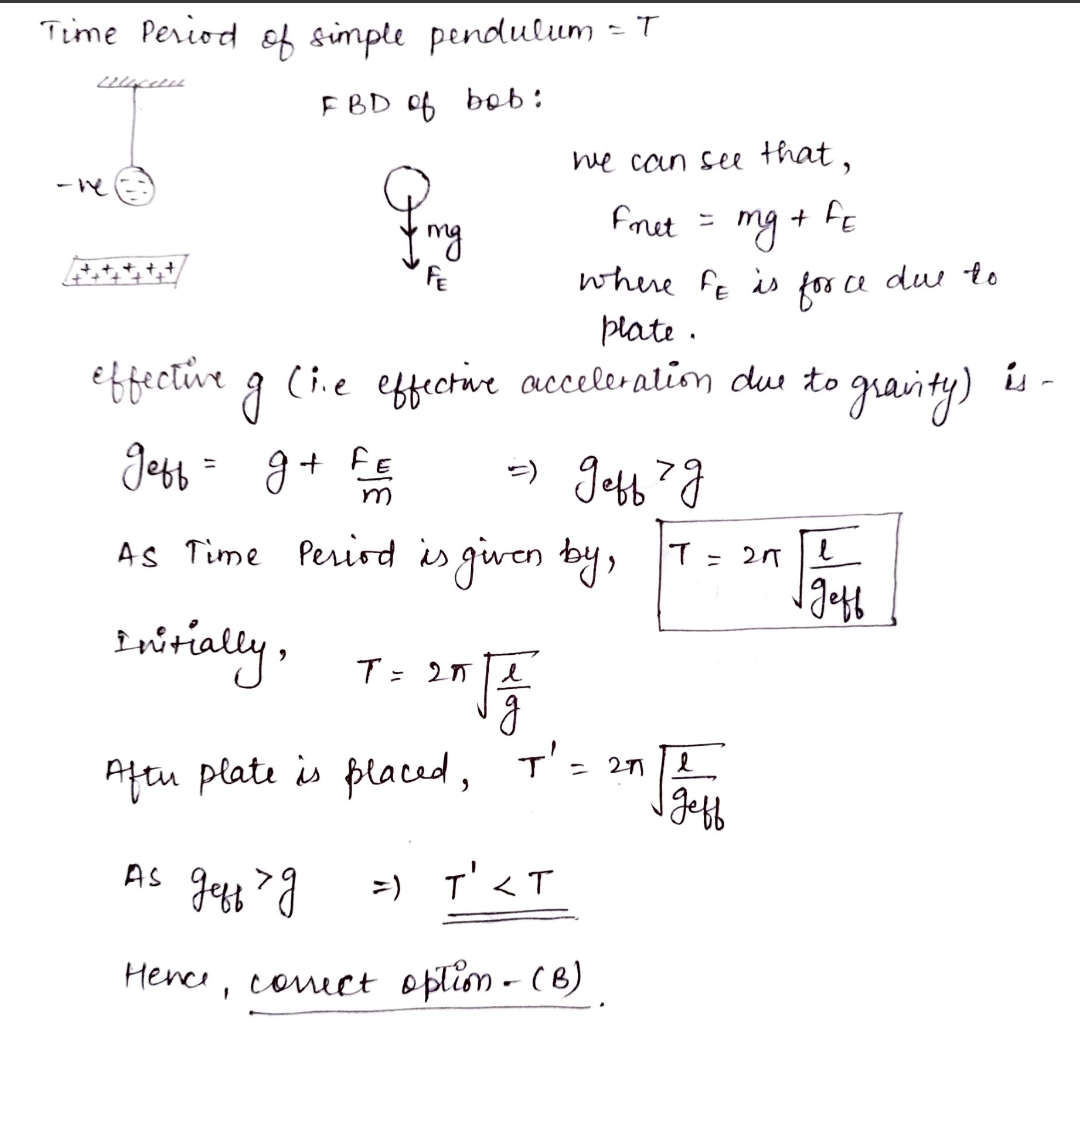 Time Period of simple pendulum = T
FBD of bob:
-ve
we can see that,
mg
Fnet = mg + FE
+ + + + + + + + +
FE
where FE is force due to
plate.
effective g (i.e effective acceleration due to gravity) is -
geff = g + FE/m => geff > g
As Time Period is given by, T = 2π √(l/geff)
Initially, T = 2π √(l/g)
After plate is placed, T' = 2π √(l/geff)
As geff > g => T' < T
Hence, correct option - (B).